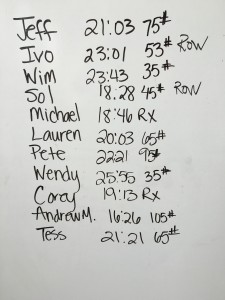 Jeff 21:03 75#
Ivo 23:01 53# Row
Wim 23:43 35#
Sol 18:28 45# Row
Michael 18:46 Rx
Lauren 20:03 65#
Pete 22:21 95#
Wendy 25:55 35#
Cordy 19:13 Rx
Andrew M. 16:26 105#
Tess 21:21 65#